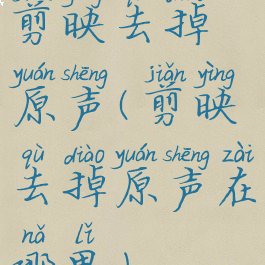 剪映去掉
yuán shēng jiǎn yìng
原声(剪映
qù diào yuán shēng zài
去掉原声在
nǎ lǐ
哪里)